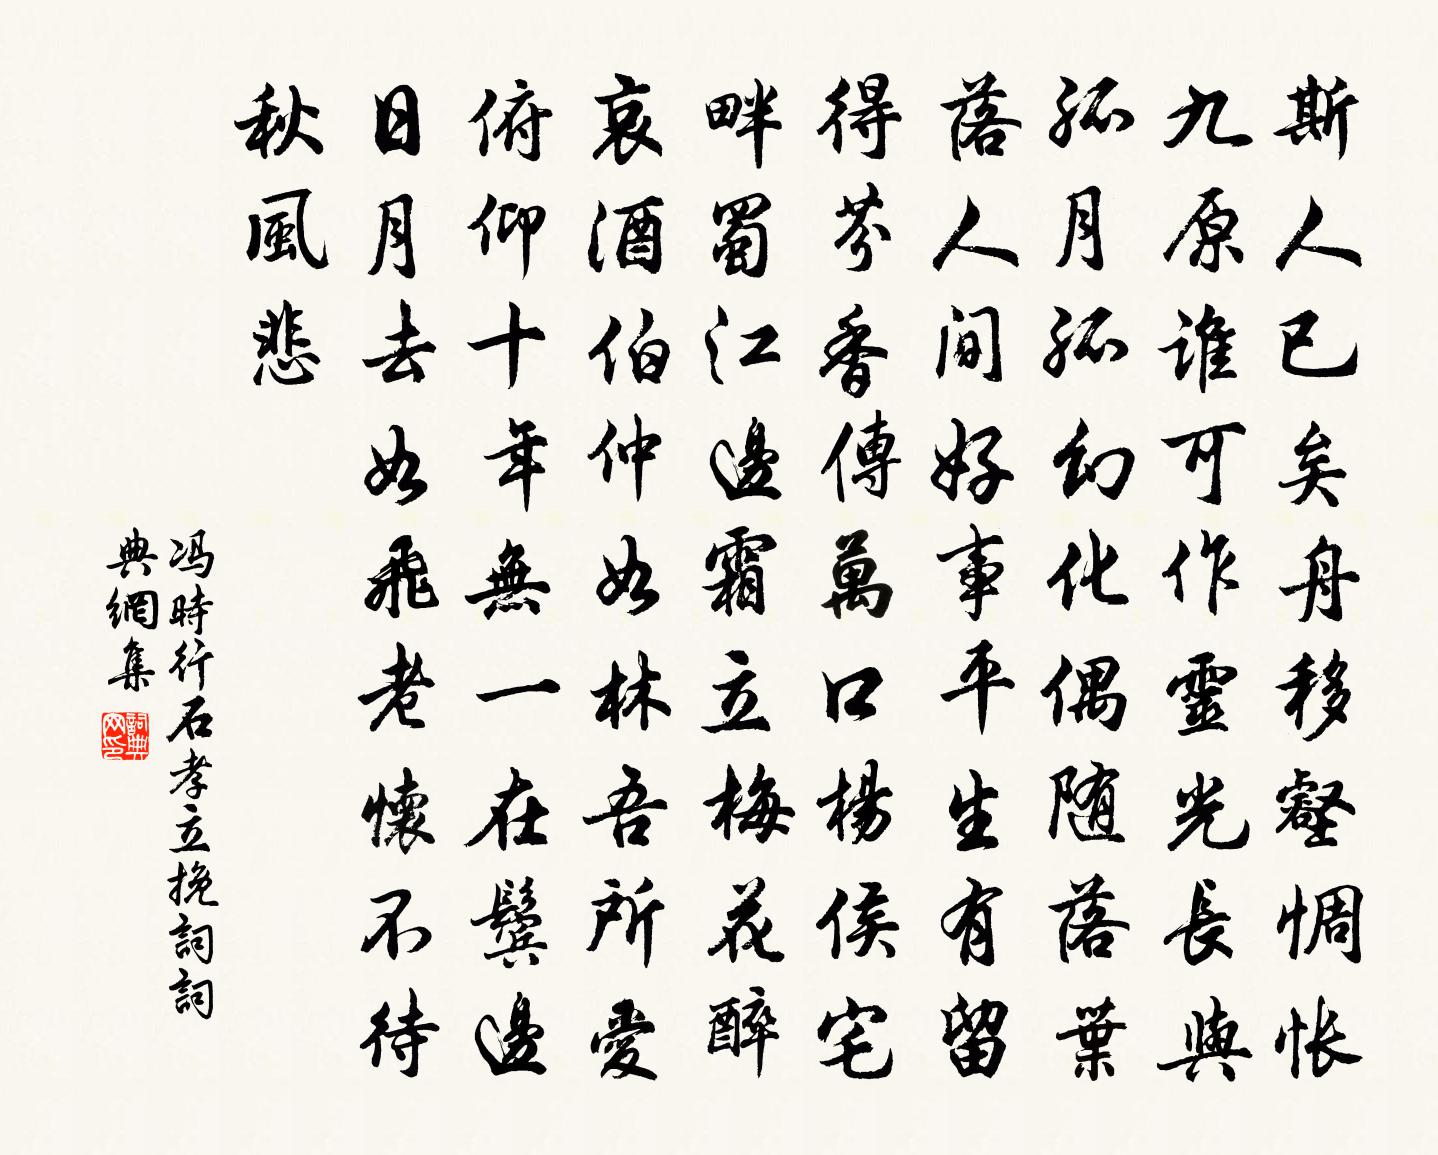 斯人已矣舟移壑惆怅
九原谁可作靈光長與
孤月孤幻化偶随落葉
落人间好事平生有留
得芬香傳萬口楊侯宅
畔蜀江邊霜立梅花醉
哀酒伯仲如林吾所愛
俯仰十年無一在鬢邊
日月去如飛老懷不待
秋風悲
冯時行石孝立挽詞詞
典網集
詞典网印